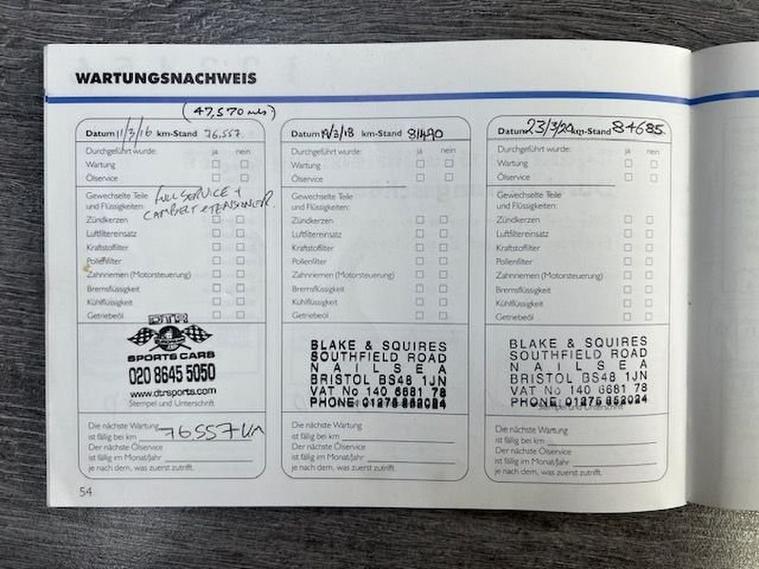 WARTUNGSNACHWEIS
(47,570 mls)
Datum 11/3/16 km-Stand 76,557
Durchgeführt wurde: ja nein
Wartung
Ölservice
Gewechselte Teile
und Flüssigkeiten:
FULL SERVICE +
CAMBELT + TENSIONER.
Zündkerzen
Luftfiltereinsatz
Kraftstoffilter
Pollenfilter
Zahnriemen (Motorsteuerung)
Bremsflüssigkeit
Kühlflüssigkeit
Getriebeöl
DTR
SPORTS CARS
020 8645 5050
www.dtrsports.com
Stempel und Unterschrift
Die nächste Wartung
ist fällig bei km 76557 KM
Der nächste Ölservice
ist fällig im Monat/Jahr
je nach dem, was zuerst zutrifft.
54
Datum /3/18 km-Stand 81490
Durchgeführt wurde: ja nein
Wartung
Ölservice
Gewechselte Teile
und Flüssigkeiten:
Zündkerzen
Luftfiltereinsatz
Kraftstoffilter
Pollenfilter
Zahnriemen (Motorsteuerung)
Bremsflüssigkeit
Kühlflüssigkeit
Getriebeöl
BLAKE & SQUIRES
SOUTHFIELD ROAD
NAILSEA
BRISTOL BS48 1JN
VAT No 140 6681 78
PHONE 01275 852024
Die nächste Wartung
ist fällig bei km
Der nächste Ölservice
ist fällig im Monat/Jahr
je nach dem, was zuerst zutrifft.
Datum 23/3/20 km-Stand 84685
Durchgeführt wurde: ja nein
Wartung
Ölservice
Gewechselte Teile
und Flüssigkeiten:
Zündkerzen
Luftfiltereinsatz
Kraftstoffilter
Pollenfilter
Zahnriemen (Motorsteuerung)
Bremsflüssigkeit
Kühlflüssigkeit
Getriebeöl
BLAKE & SQUIRES
SOUTHFIELD ROAD
NAILSEA
BRISTOL BS48 1JN
VAT No 140 6681 78
PHONE 01275 852024
Stempel und Unterschrift
Die nächste Wartung
ist fällig bei km
Der nächste Ölservice
ist fällig im Monat/Jahr
je nach dem, was zuerst zutrifft.